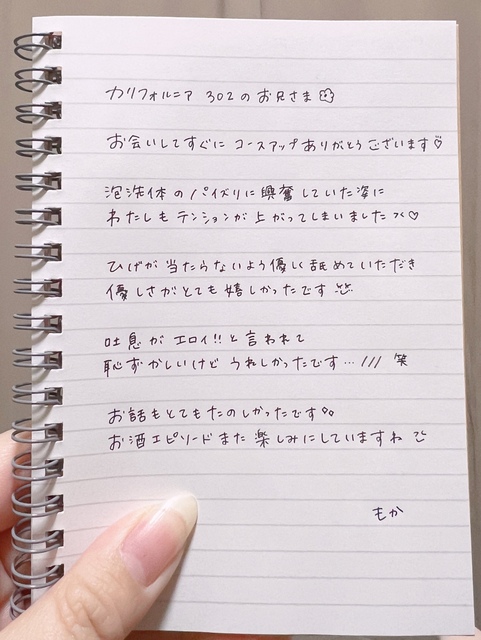 カリフォルニア 302のお兄さま
お会いしてすぐに コースアップありがとうございます♡
泡洗体のパイズリに興奮していた姿に
わたしもテンションが上がってしまいました ♡
ひげが当たらないよう優しく舐めていただき
優しさがとても嬉しかったです
吐息がエロイ!!と言われて
恥ずかしいけどうれしかったです…/// 笑
お話もとてもたのしかったです
お酒エピソードまた楽しみにしていますね
もか